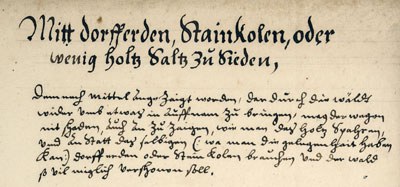 Mitt dorfferden, Stainkolen, oder
wenig holtz Saltz Zu Sieden,
Demnach mittel angezaigt worden, der durch die wäldt
wider umb etwas in auffnam zu bringen, mag der wegen
nit schaden, auch an zu zaigen, wie man das holtz Spahren,
und an statt des selbigen (: wa man die gelegenhait haben
Kan:) dorfferden oder Stain Kolen brauchen und der wald
so vil müglich verschonen soll.